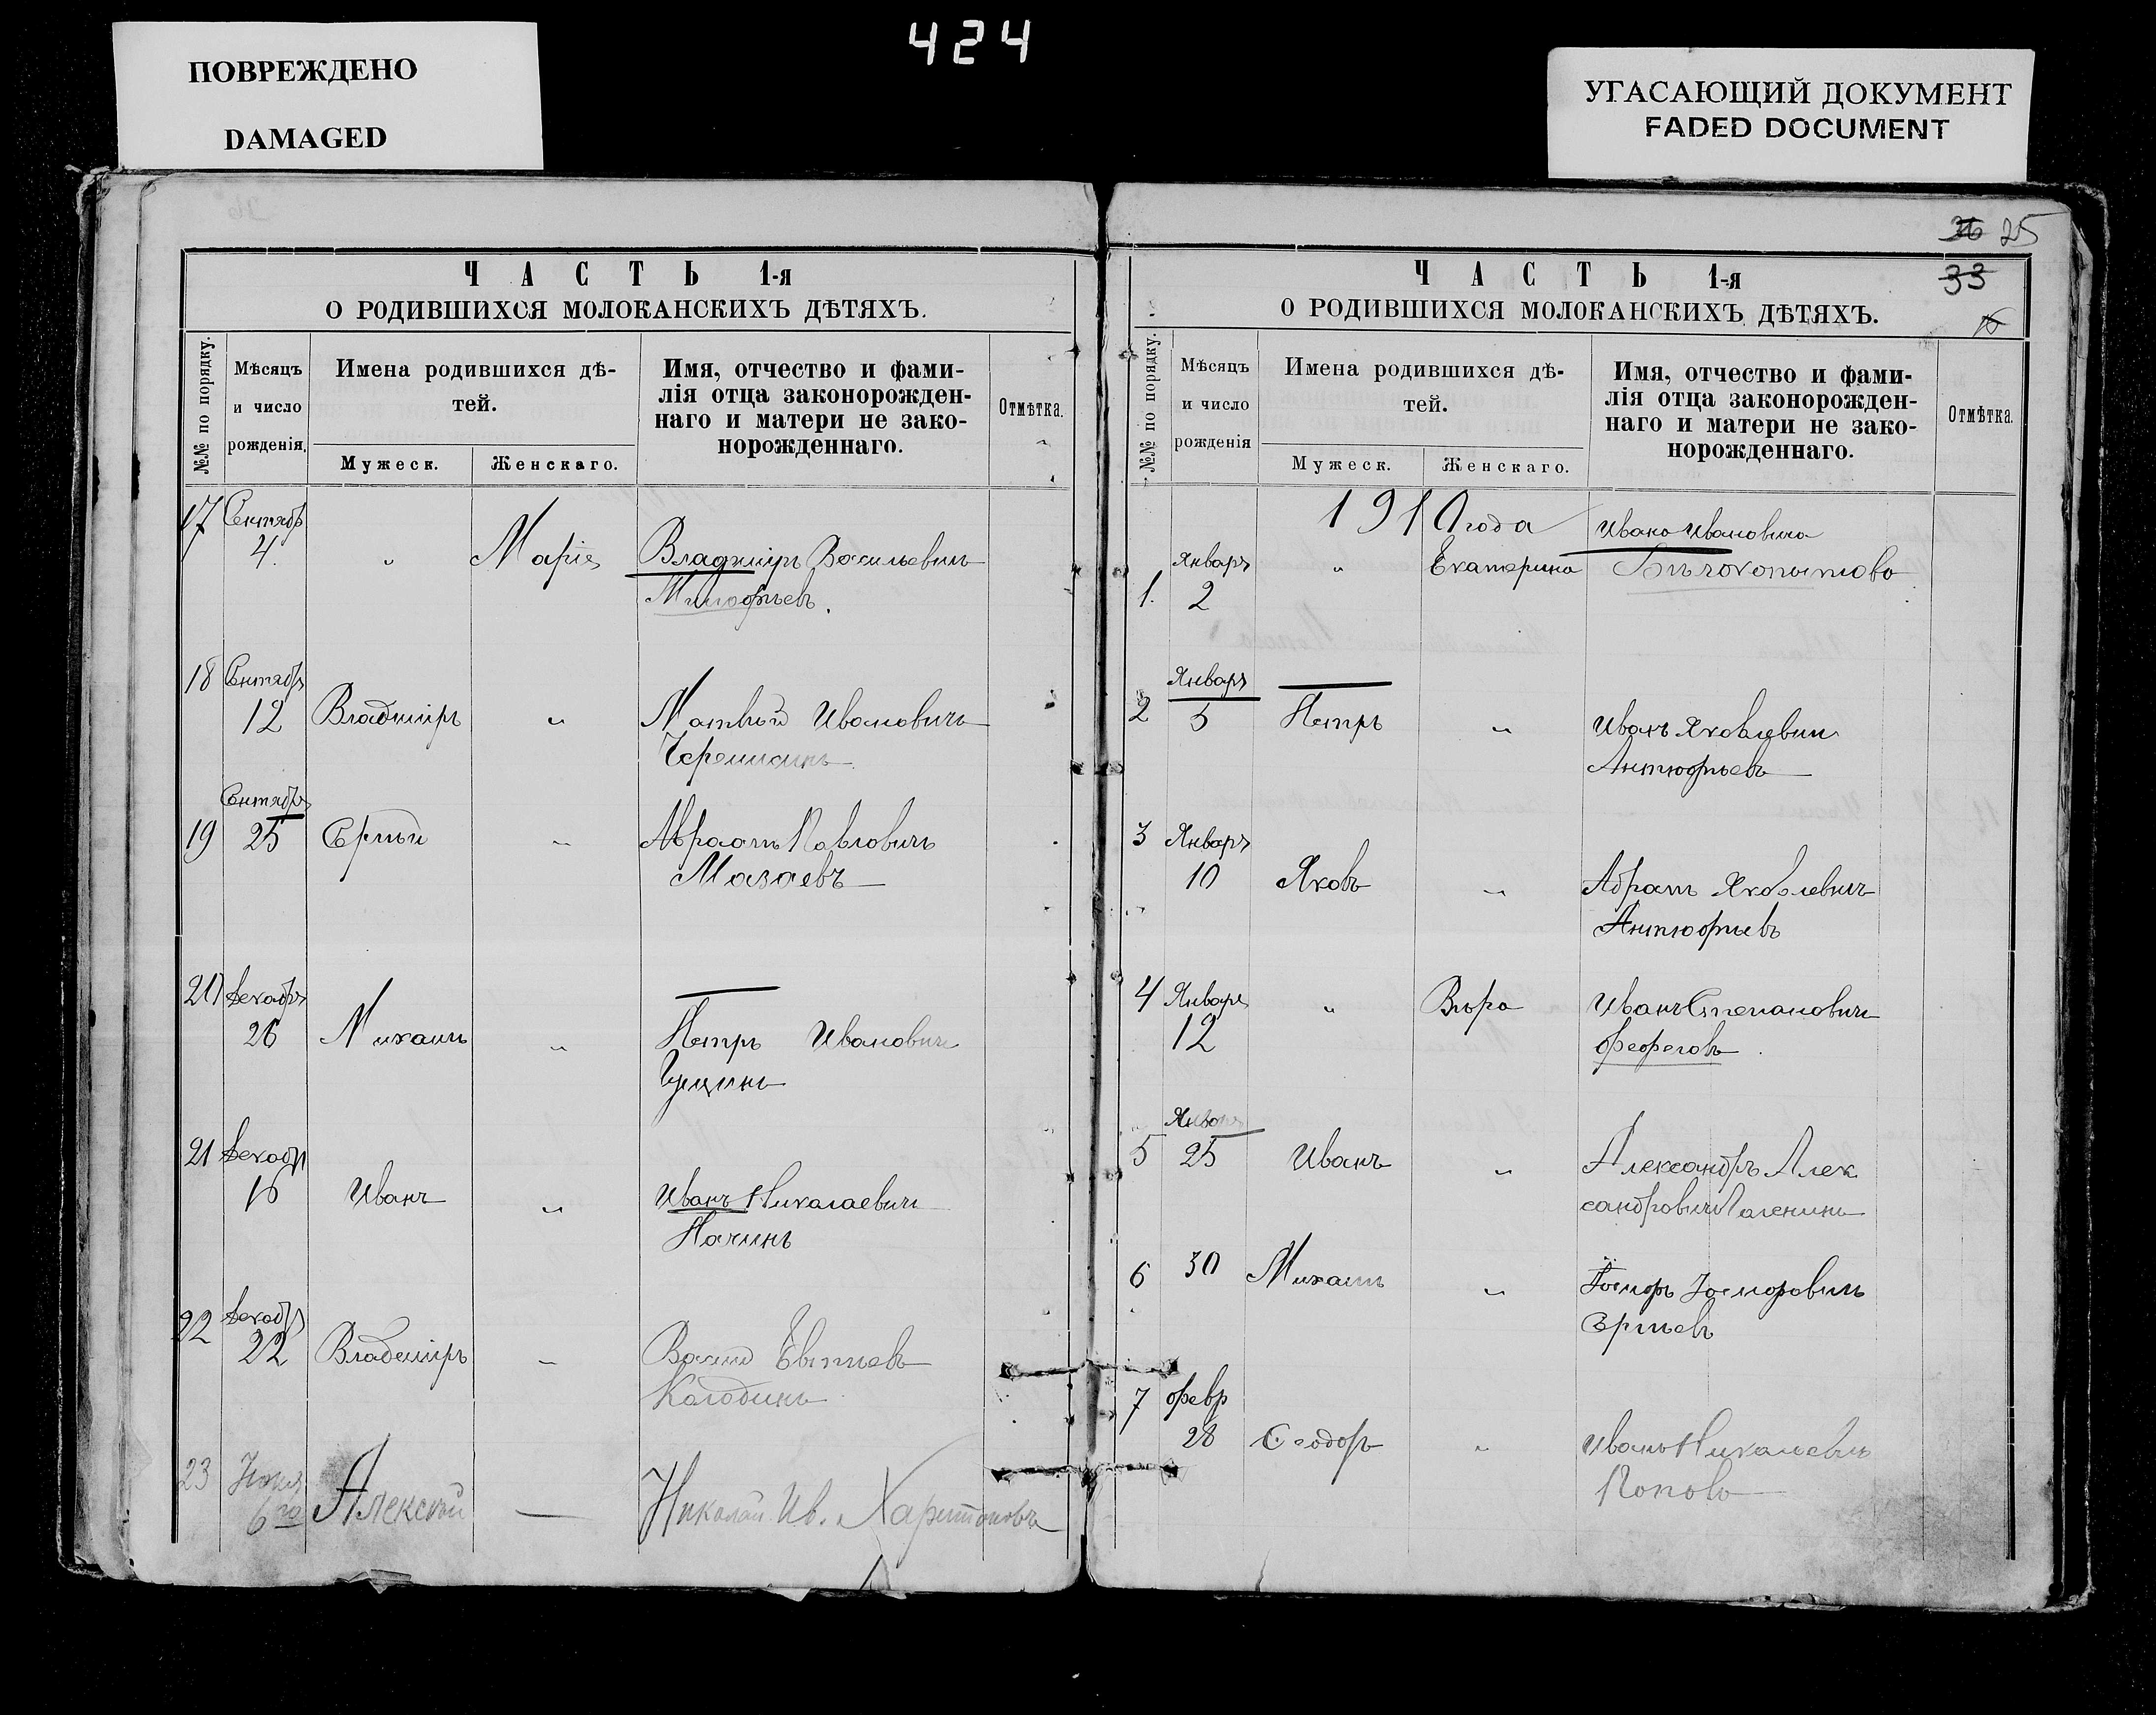 424
ПОВРЕЖДЕНО
DAMAGED
УГАСАЮЩИЙ ДОКУМЕНТ
FADED DOCUMENT
ЧАСТЬ 1-я
О РОДИВШИХСЯ МОЛОКАНСКИХЪ ДѢТЯХЪ.
№№ по порядку.
Мѣсяцъ
и число
рожденія.
Имена родившихся дѣ-
тей.
Мужеск. Женскаго.
Имя, отчество и фами-
лія отца законорожден-
наго и матери не зако-
норожденнаго.
Отмѣтка.
17 Сентябр
4 " Марія Владиміръ Васильевичъ
18 Сентябр
12 Владиміръ " Матвѣй Ивановичъ
19 Сентябр
25 Сергѣй " Авраамъ Павловичъ
Мазаевъ
20 Декабря
26 Михаилъ " Петръ Ивановичъ
21 Декабр
16 Иванъ " Иванъ Николаевичъ
22 Декабр
22 Владиміръ " Василій
Колодинъ
23
6го Алексѣй — Николай Ив. Харитоновъ
26 25
33
ЧАСТЬ 1-я
О РОДИВШИХСЯ МОЛОКАНСКИХЪ ДѢТЯХЪ.
№№ по порядку.
Мѣсяцъ
и число
рожденія
Имена родившихся дѣ-
тей.
Мужеск. Женскаго.
Имя, отчество и фами-
лія отца законорожден-
наго и матери не зако-
норожденнаго.
Отмѣтка.
1910 года
Ивана Ивановича
Января " Екатерина Бѣлокопытова
1. 2
Января
2 5 Петръ " Иванъ Яковлевичъ
Антюфѣевъ
3 Января
10 Яковъ " Абрамъ Яковлевичъ
Антюфѣевъ
4 Января " Вѣра Иванъ Степановичъ
12
5 25 Иванъ " Александръ Алек
сандровичъ
6 30 Михаилъ "
7 февр
28 Феодоръ " Иванъ Николаевичъ
Попова